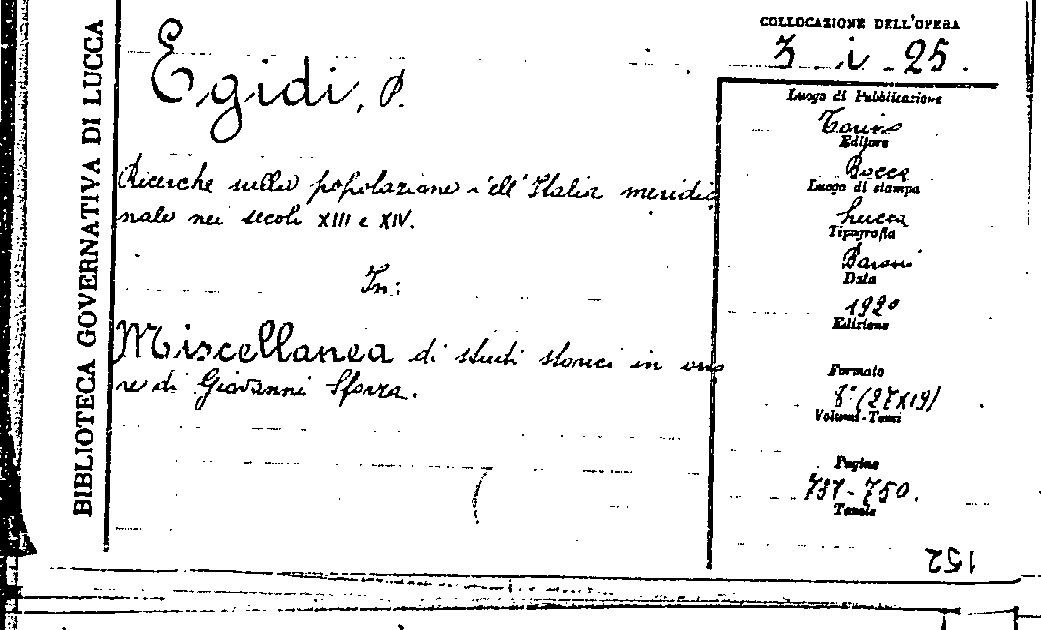 BIBLIOTECA GOVERNATIVA DI LUCCA
Egidi, P.
Ricerche sulla popolazione dell'Italia meridio
nale nei secoli XIII e XIV.
In:
Miscellanea di studi storici in ono
re di Giovanni Sforza.
COLLOCAZIONE DELL'OPERA
3. i. 25.
Luogo di Pubblicazione
Torino
Editore
Bocca
Luogo di stampa
Lucca
Tipografia
Baroni
Data
1920
Edizione
Formato
8° (27X19)
Volumi-Tomi
Pagine
737-750.
Tavole
152